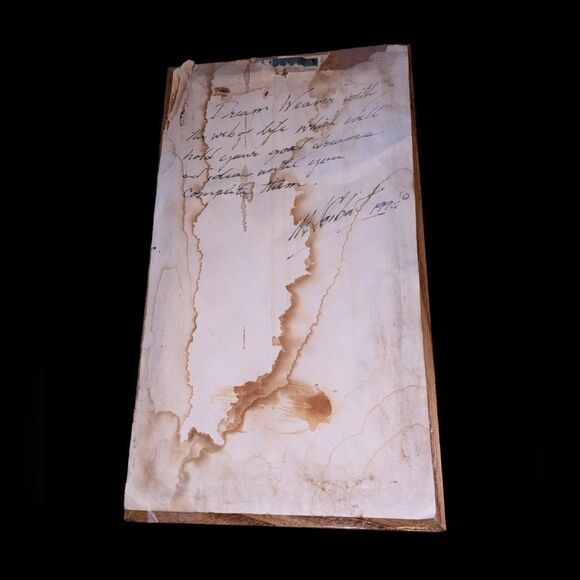 Dream Weaver with
the web of life which will
hold your good dreams
and ideas until you
complete them.
1992 ©